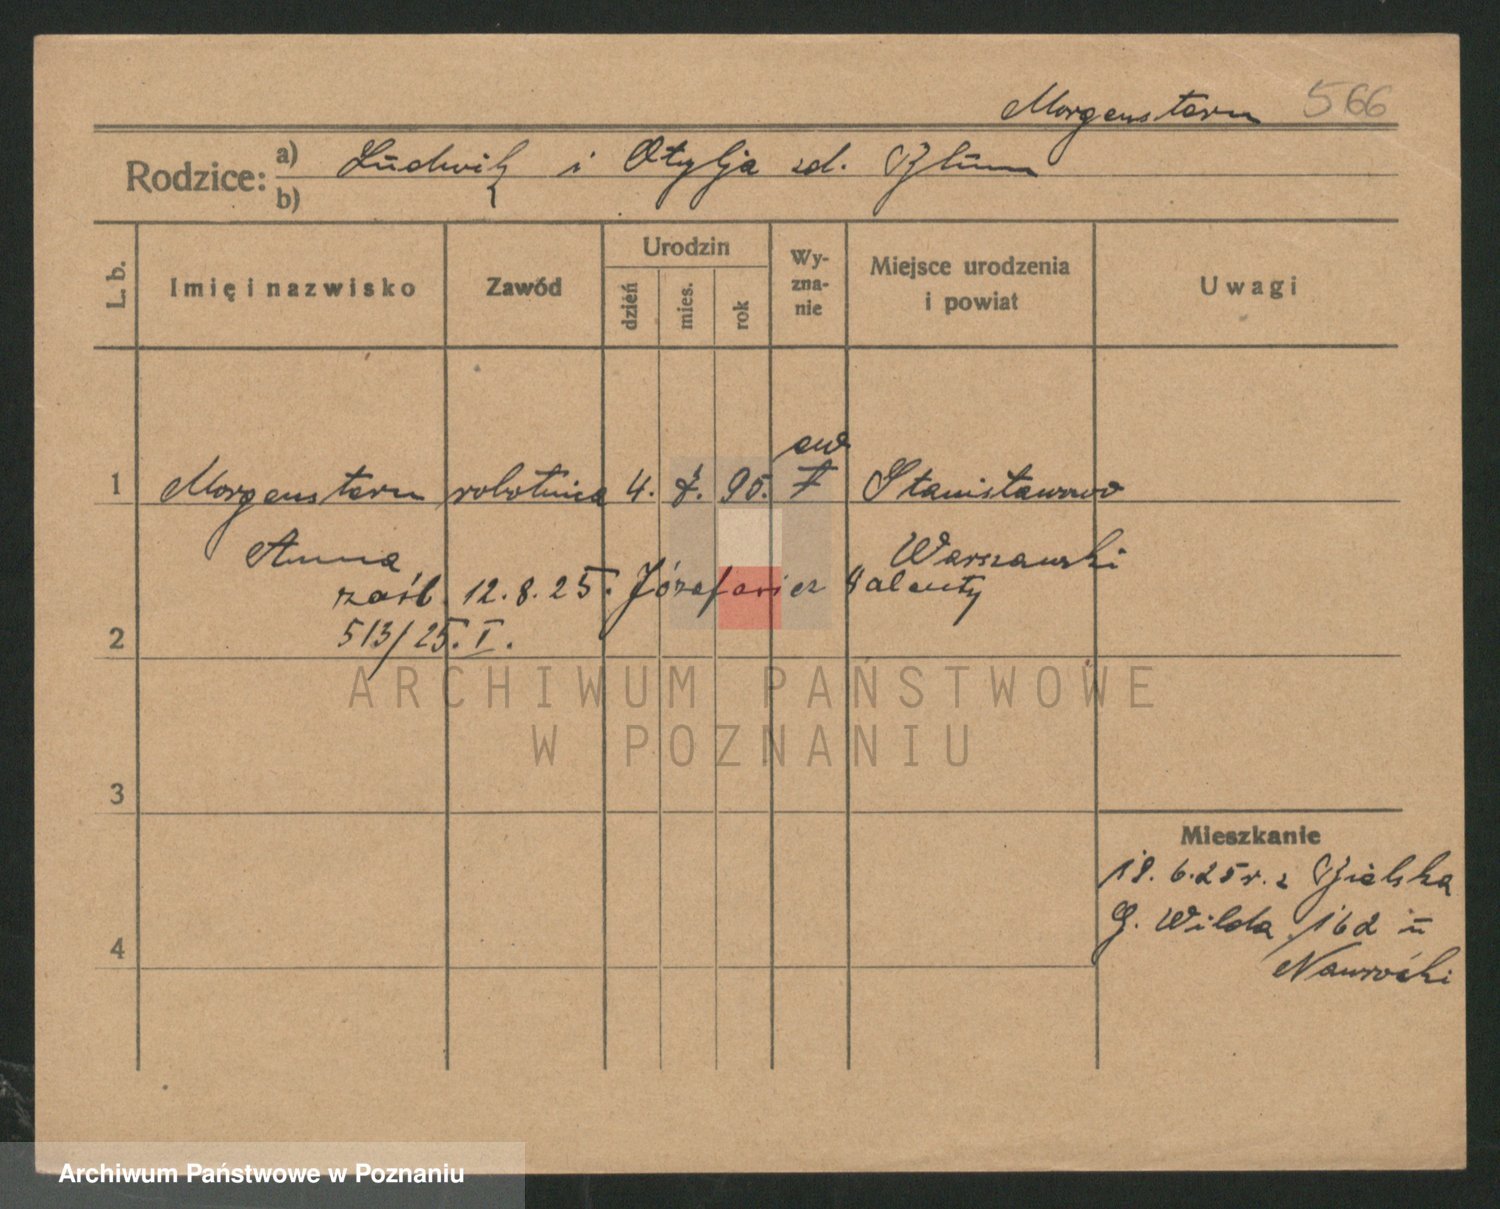 Morgenstern 566
Rodzice: a) Ludwik i Otylja zd. Blum
b)
L. b. Imię i nazwisko Zawód Urodzin dzień mies. rok Wy-zna-nie Miejsce urodzenia i powiat Uwagi
ew
1 Morgenstern robotnica 4. 95. Stanisławowo
Anna Warszawski
zaśl. 12.8.25. Józefowicz Walenty
2 513/25. I.
ARCHIWUM PAŃSTWOWE
W POZNANIU
3
Mieszkanie
18.6.25 r. z Bielska
4 G. Wilda 162 II
Nawrocki
Archiwum Państwowe w Poznaniu